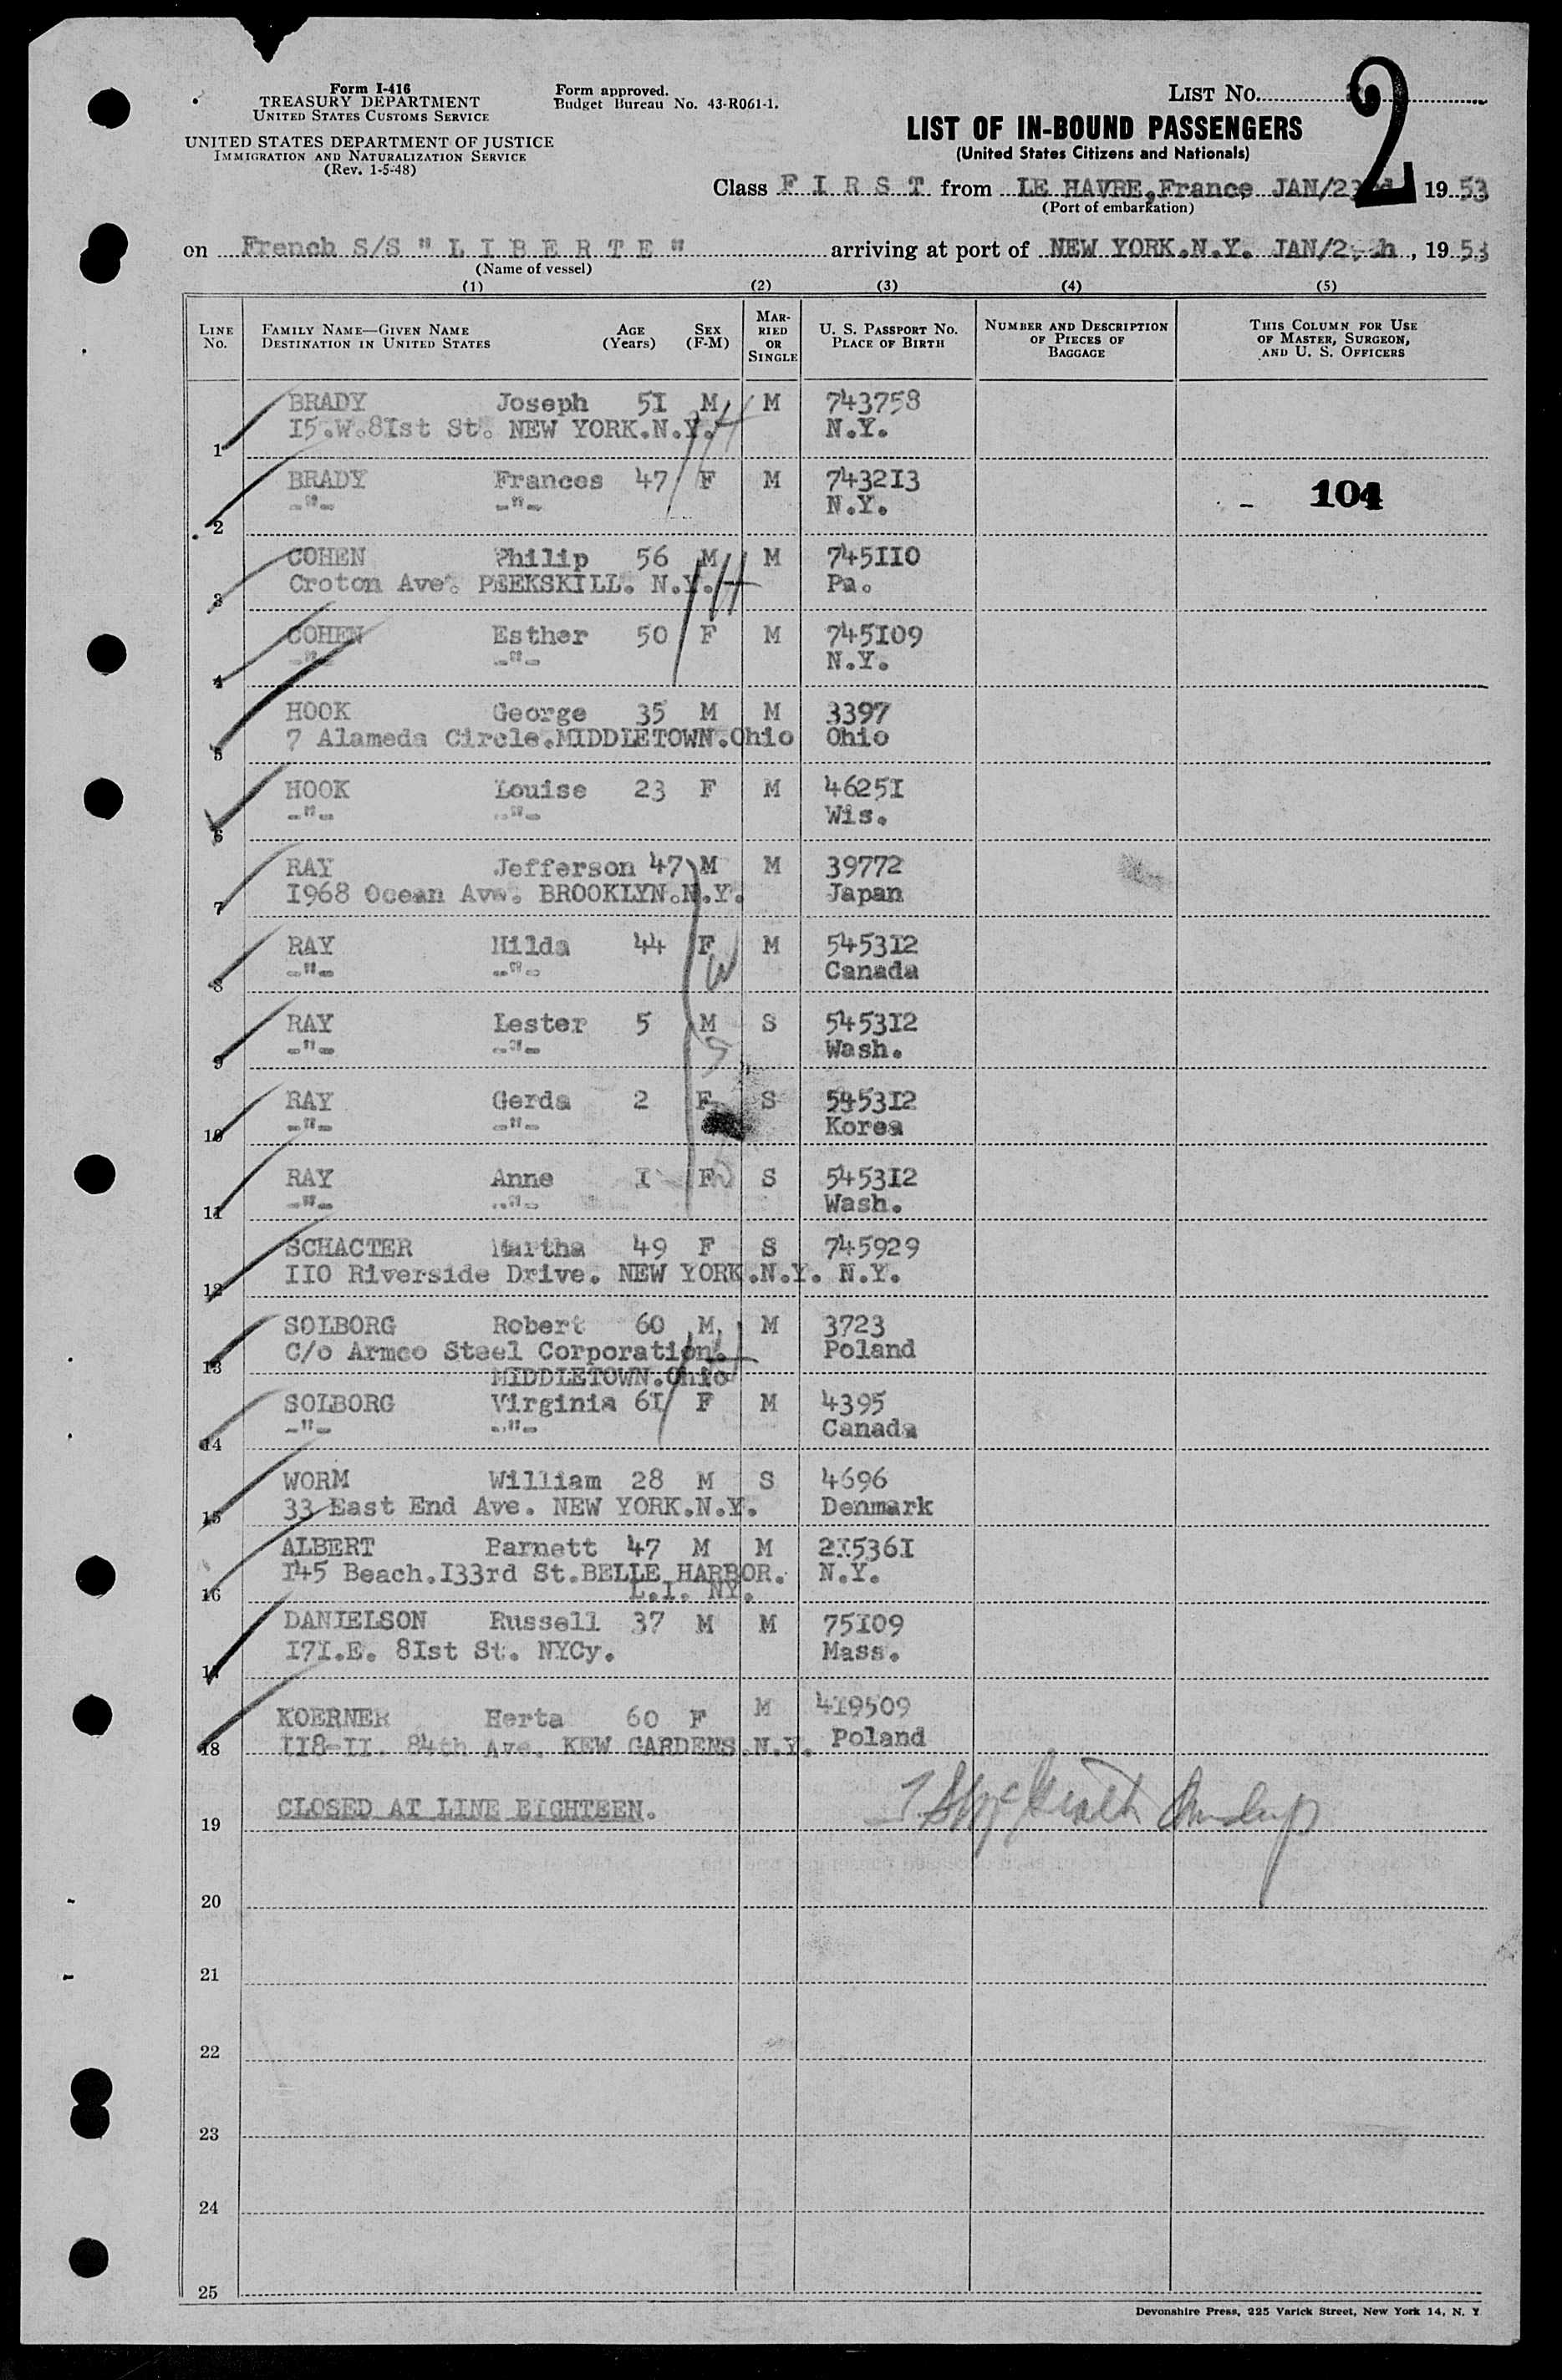 Form I-416
TREASURY DEPARTMENT
UNITED STATES CUSTOMS SERVICE
UNITED STATES DEPARTMENT OF JUSTICE
IMMIGRATION AND NATURALIZATION SERVICE
(Rev. 1-5-48)
Form approved.
Budget Bureau No. 43-R061-1.
LIST NO. 2
LIST OF IN-BOUND PASSENGERS
(United States Citizens and Nationals)
Class F I R S T from LE HAVRE, France, JAN/23rd 1953
(Port of embarkation)
on French S/S " L I B E R T E " arriving at port of NEW YORK.N.Y. JAN/2 th, 1953
(Name of vessel)
(1) (2) (3) (4) (5)
LINE No. FAMILY NAME—GIVEN NAME DESTINATION IN UNITED STATES AGE (Years) SEX (F-M) MARRIED OR SINGLE U. S. PASSPORT NO. PLACE OF BIRTH NUMBER AND DESCRIPTION OF PIECES OF BAGGAGE THIS COLUMN FOR USE OF MASTER, SURGEON, AND U. S. OFFICERS
BRADY Joseph 5I M M 743758
1 I5.W.8Ist St. NEW YORK.N.Y. N.Y.
BRADY Frances 47 F M 7432I3
2 -"- -"- N.Y.
- 104
COHEN Philip 56 M M 745II0
3 Croton Ave. PEEKSKILL. N.Y. Pa.
COHEN Esther 50 F M 745I09
4 -"- -"- N.Y.
HOOK George 35 M M 3397
5 7 Alameda Circle.MIDDLETOWN.Ohio Ohio
HOOK Louise 23 F M 4625I
6 -"- -"- Wis.
RAY Jefferson 47 M M 39772
7 I968 Ocean Ave. BROOKLYN.N.Y. Japan
RAY Hilda 44 F M 5453I2
8 -"- -"- Canada
RAY Lester 5 M S 5453I2
9 -"- -"- Wash.
RAY Gerda 2 F S 5453I2
10 -"- -"- Korea
RAY Anne I F S 5453I2
11 -"- -"- Wash.
SCHACTER Martha 49 F S 745929
12 II0 Riverside Drive. NEW YORK.N.Y. N.Y.
SOLBORG Robert 60 M M 3723
13 C/o Armco Steel Corporation. Poland
MIDDLETOWN.Ohio
SOLBORG Virginia 6I F M 4395
14 -"- -"- Canada
WORM William 28 M S 4696
15 33 East End Ave. NEW YORK.N.Y. Denmark
ALBERT Barnett 47 M M 2I536I
16 I45 Beach.I33rd St.BELLE HARBOR. N.Y.
L.I. NY.
DANIELSON Russell 37 M M 75I09
17 I7I.E. 8Ist St. NYCy. Mass.
KOERNER Herta 60 F M 4I9509
18 II8-II. 84th Ave. KEW GARDENS.N.Y. Poland
19 CLOSED AT LINE EIGHTEEN.
20
21
22
23
24
25
Devonshire Press, 225 Varick Street, New York 14, N. Y.